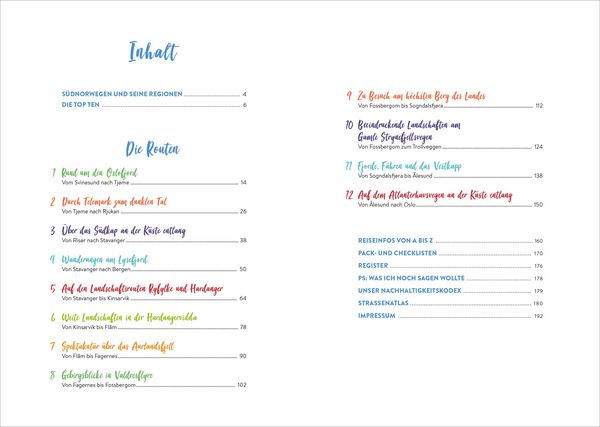 Inhalt
SÜDNORWEGEN UND SEINE REGIONEN 4
DIE TOP TEN 6
Die Routen
1 Rund um den Oslofjord
Von Svinesund nach Tjøme 14
2 Durch Telemark zum dunklen Tal
Von Tjøme nach Rjukan 26
3 Über das Südkap an der Küste entlang
Von Risør nach Stavanger 38
4 Wanderungen am Lysefjord
Von Stavanger nach Bergen 50
5 Auf den Landschaftsrouten Ryfylke und Hardanger
Von Stavanger bis Kinsarvik 64
6 Weite Landschaften in der Hardangervidda
Von Kinsarvik bis Flåm 78
7 Spektakulär über das Aurlandsfjell
Von Flåm bis Fagernes 90
8 Gebirgsblicke in Valdresflye
Von Fagernes bis Fossbergom 102
9 Zu Besuch am höchsten Berg des Landes
Von Fossbergom bis Sogndalsfjøra 112
10 Beeindruckende Landschaften am
Gamle Strynefjellsvegen
Von Fossbergom zum Trollveggen 124
11 Fjorde, Fähren und das Vestkapp
Von Sogndalsfjøra bis Ålesund 138
12 Auf dem Atlanterhavsvegen an der Küste entlang
Von Ålesund nach Oslo 150
REISEINFOS VON A BIS Z 160
PACK- UND CHECKLISTEN 170
REGISTER 176
PS: WAS ICH NOCH SAGEN WOLLTE 178
UNSER NACHHALTIGKEITSKODEX 179
STRASSENATLAS 180
IMPRESSUM 192